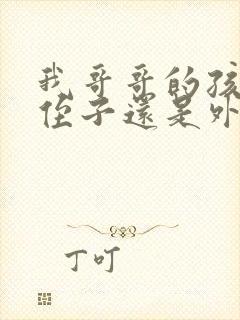 我哥哥的孩
侄子還是外
丁叮